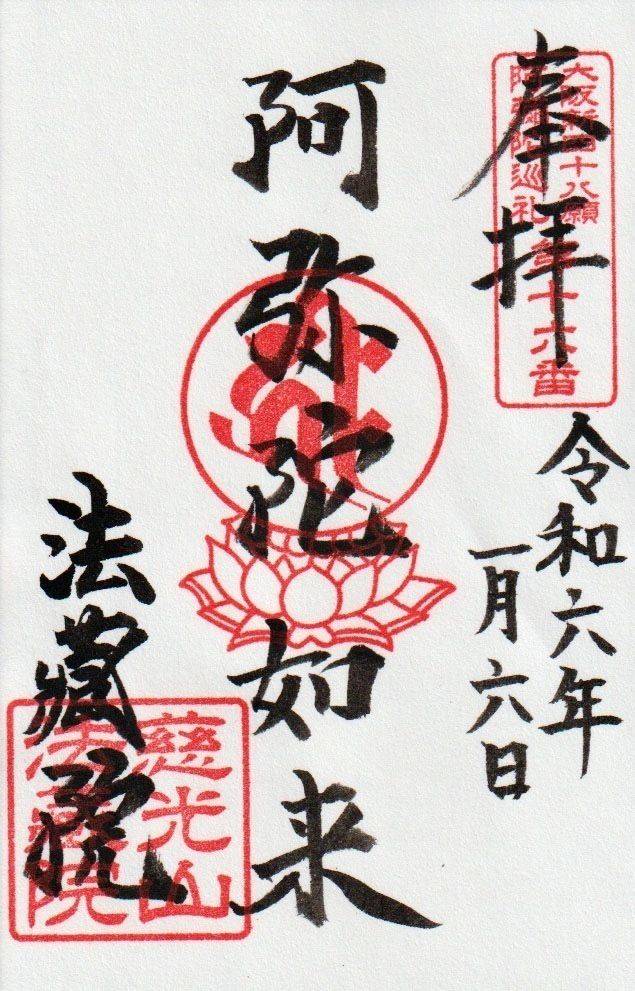 奉拝
大阪新四十八願
阿弥陀巡礼 第十六番
令和六年
一月六日
阿弥陀如来
法蔵院
慈光山
法蔵院